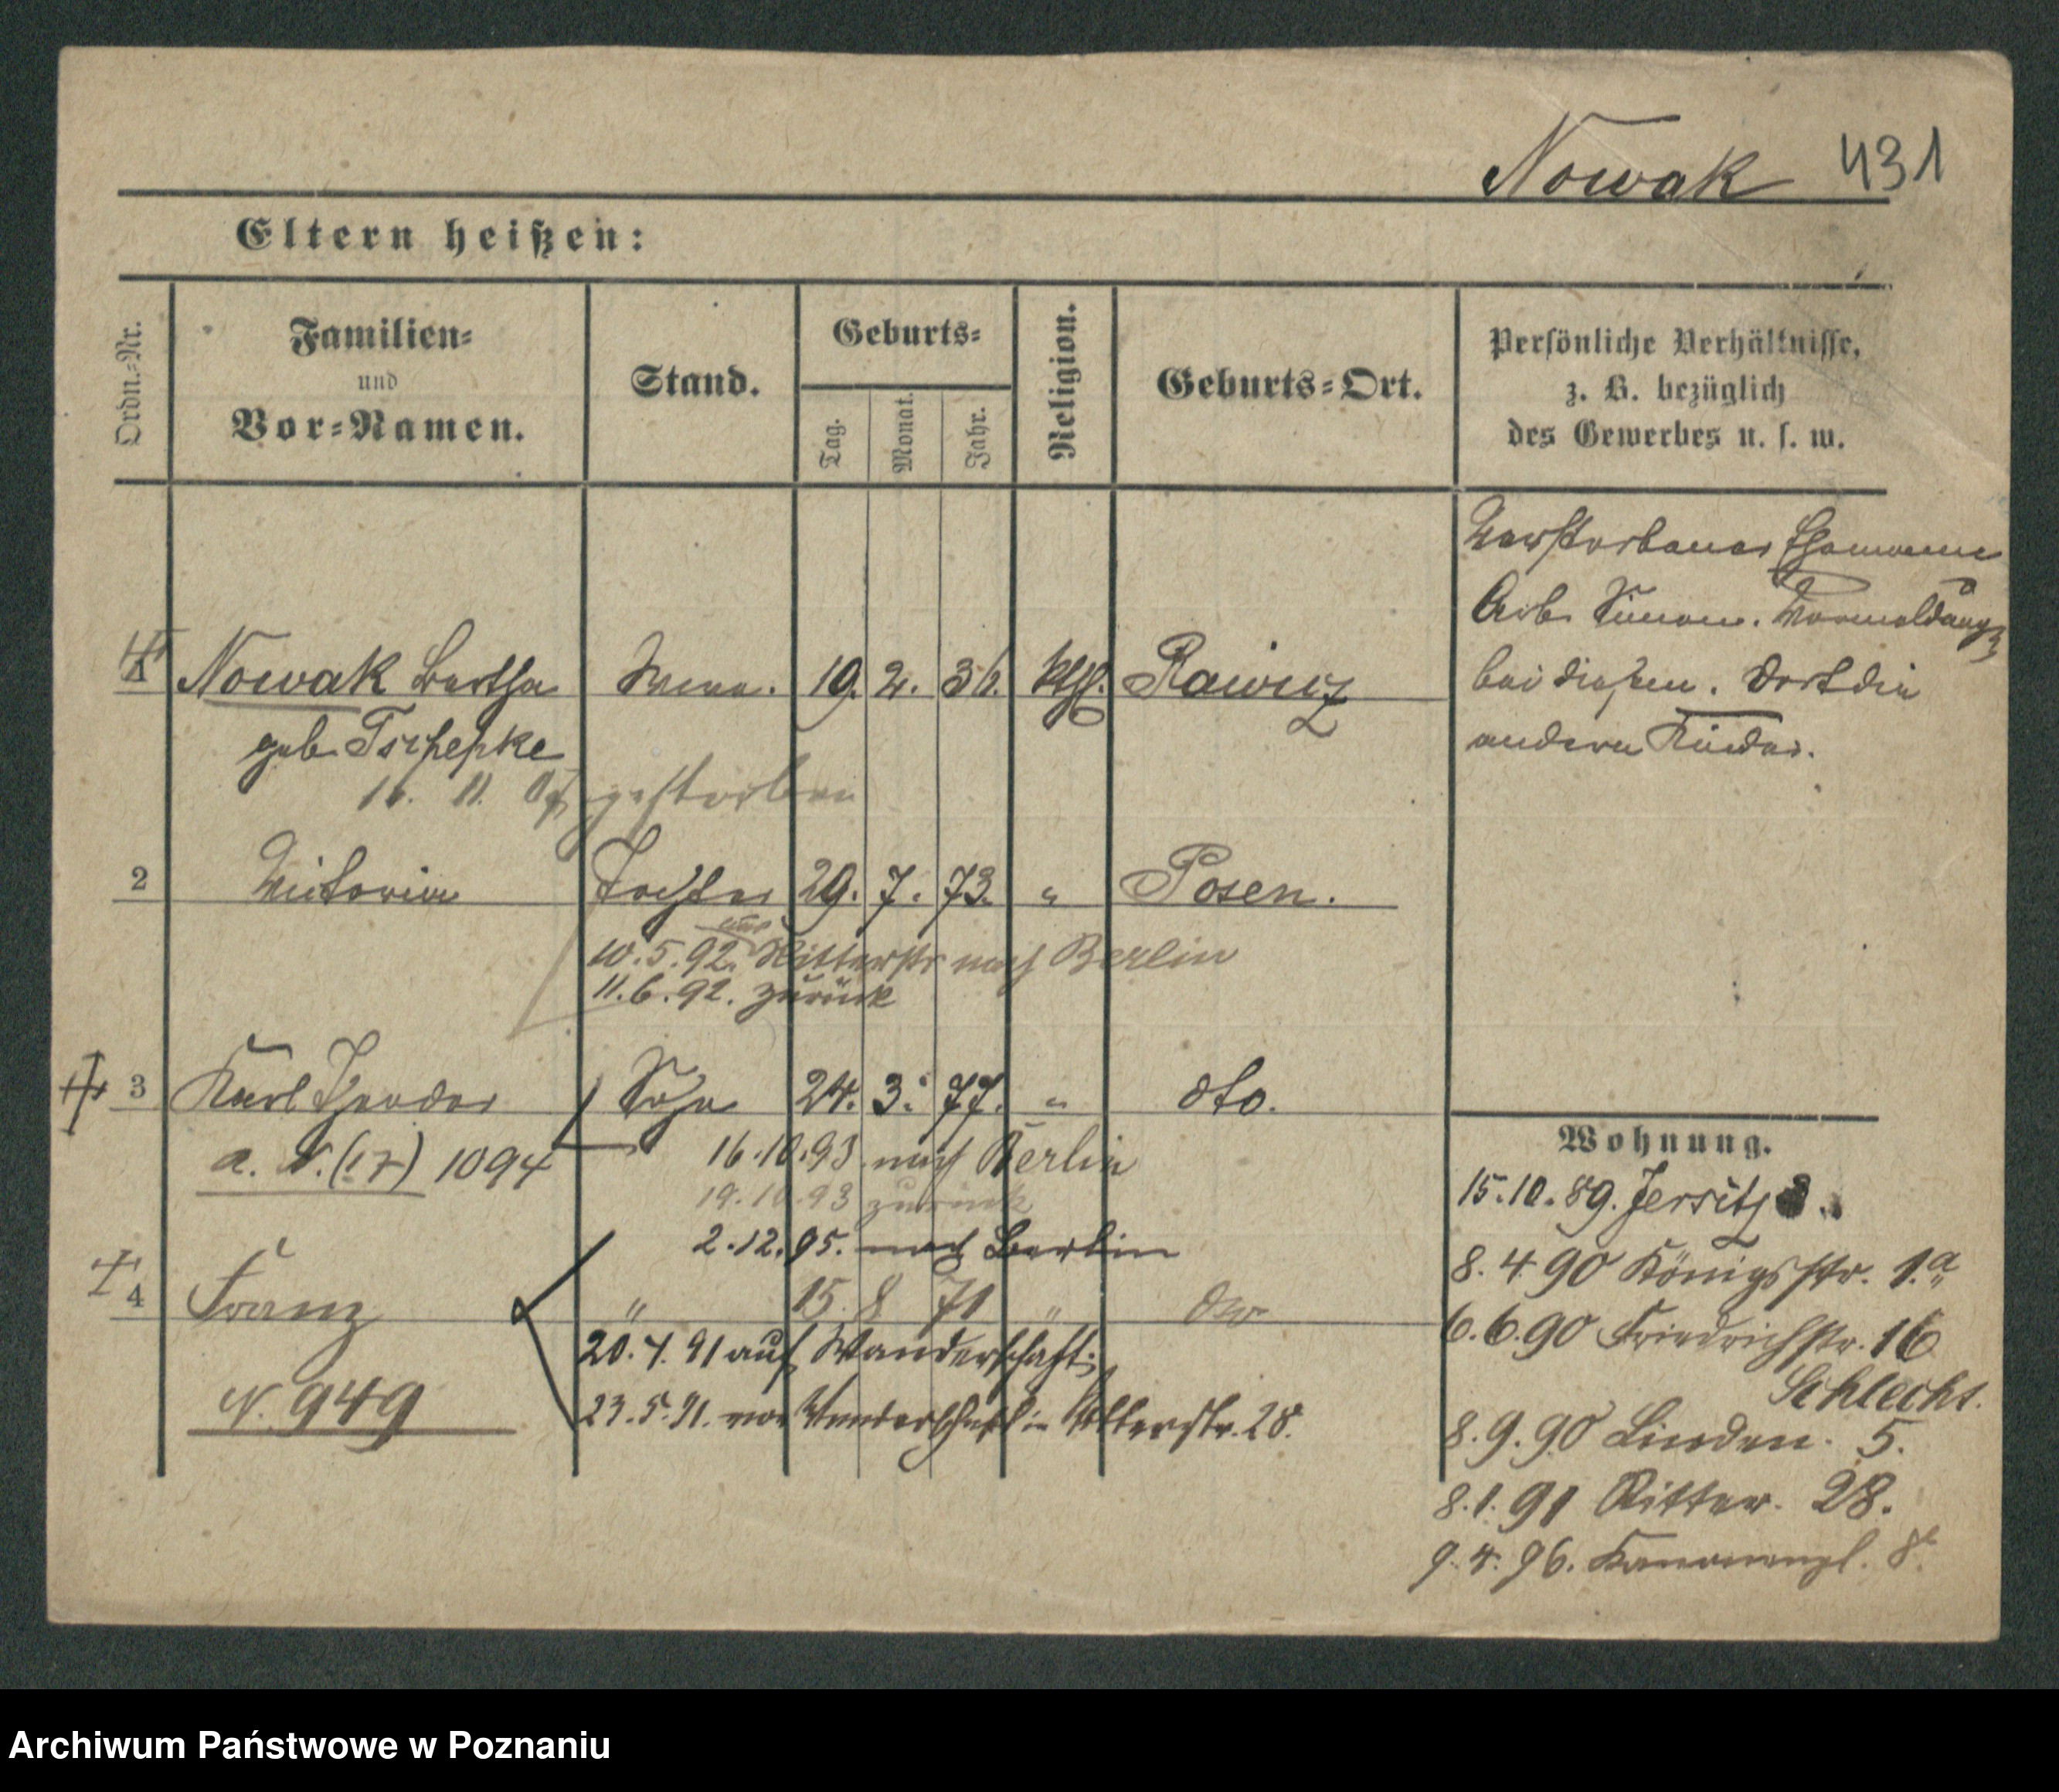 Nowak 431
Eltern heißen:
Ordn.-Nr.
Familien-
und
Vor-Namen.
Stand.
Geburts-
Tag.
Monat.
Jahr.
Religion.
Geburts-Ort.
Persönliche Verhältnisse,
z. B. bezüglich
des Gewerbes u. s. w.
Verstorbener Ehemann
Arb. Simon. Vormeldung
bei diesem. Dort die
andern Kinder.
1 Nowak Bertha Wwe. 19. 2. 36. kth. Rawicz
geb. Tschepke
gestorben
2 Victoria Tochter 29. 7. 73. " Posen.
10.5.92. aus Ritterstr nach Berlin
11.6.92. zurück
3 Karl Theodor Sohn 24. 3. 77. " dto.
a. N. (17) 1094 16.10.93 nach Berlin
19.10.93 zurück
2.12.95. nach Berlin
4 Franz " 15. 8 71 " dto
20.4.91 auf Wanderschaft;
N. 949
23.5.91. von Wanderschaft in Ritterstr. 28.
Wohnung.
15.10.89. Jersitz
8.4.90 Königsstr. 1.a
6.6.90 Friedrichstr. 16
Schlecht.
8.9.90 Linden. 5.
8.1.91 Ritter. 28.
9.4.96. Kanonenpl. 8.
Archiwum Państwowe w Poznaniu